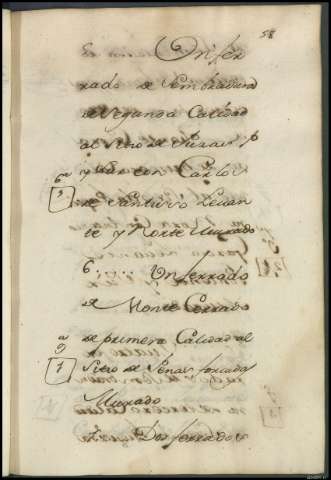 58
Un fer
rado de Sembradura
de Segunda Calidad
al Sitio de
y Sur con Carlos
de Santiso Levan
te y Norte Murado
6. Un ferrado
de Monte Cerrado
de primera Calidad al
Sitio de Penas
Murado
Dos ferrados